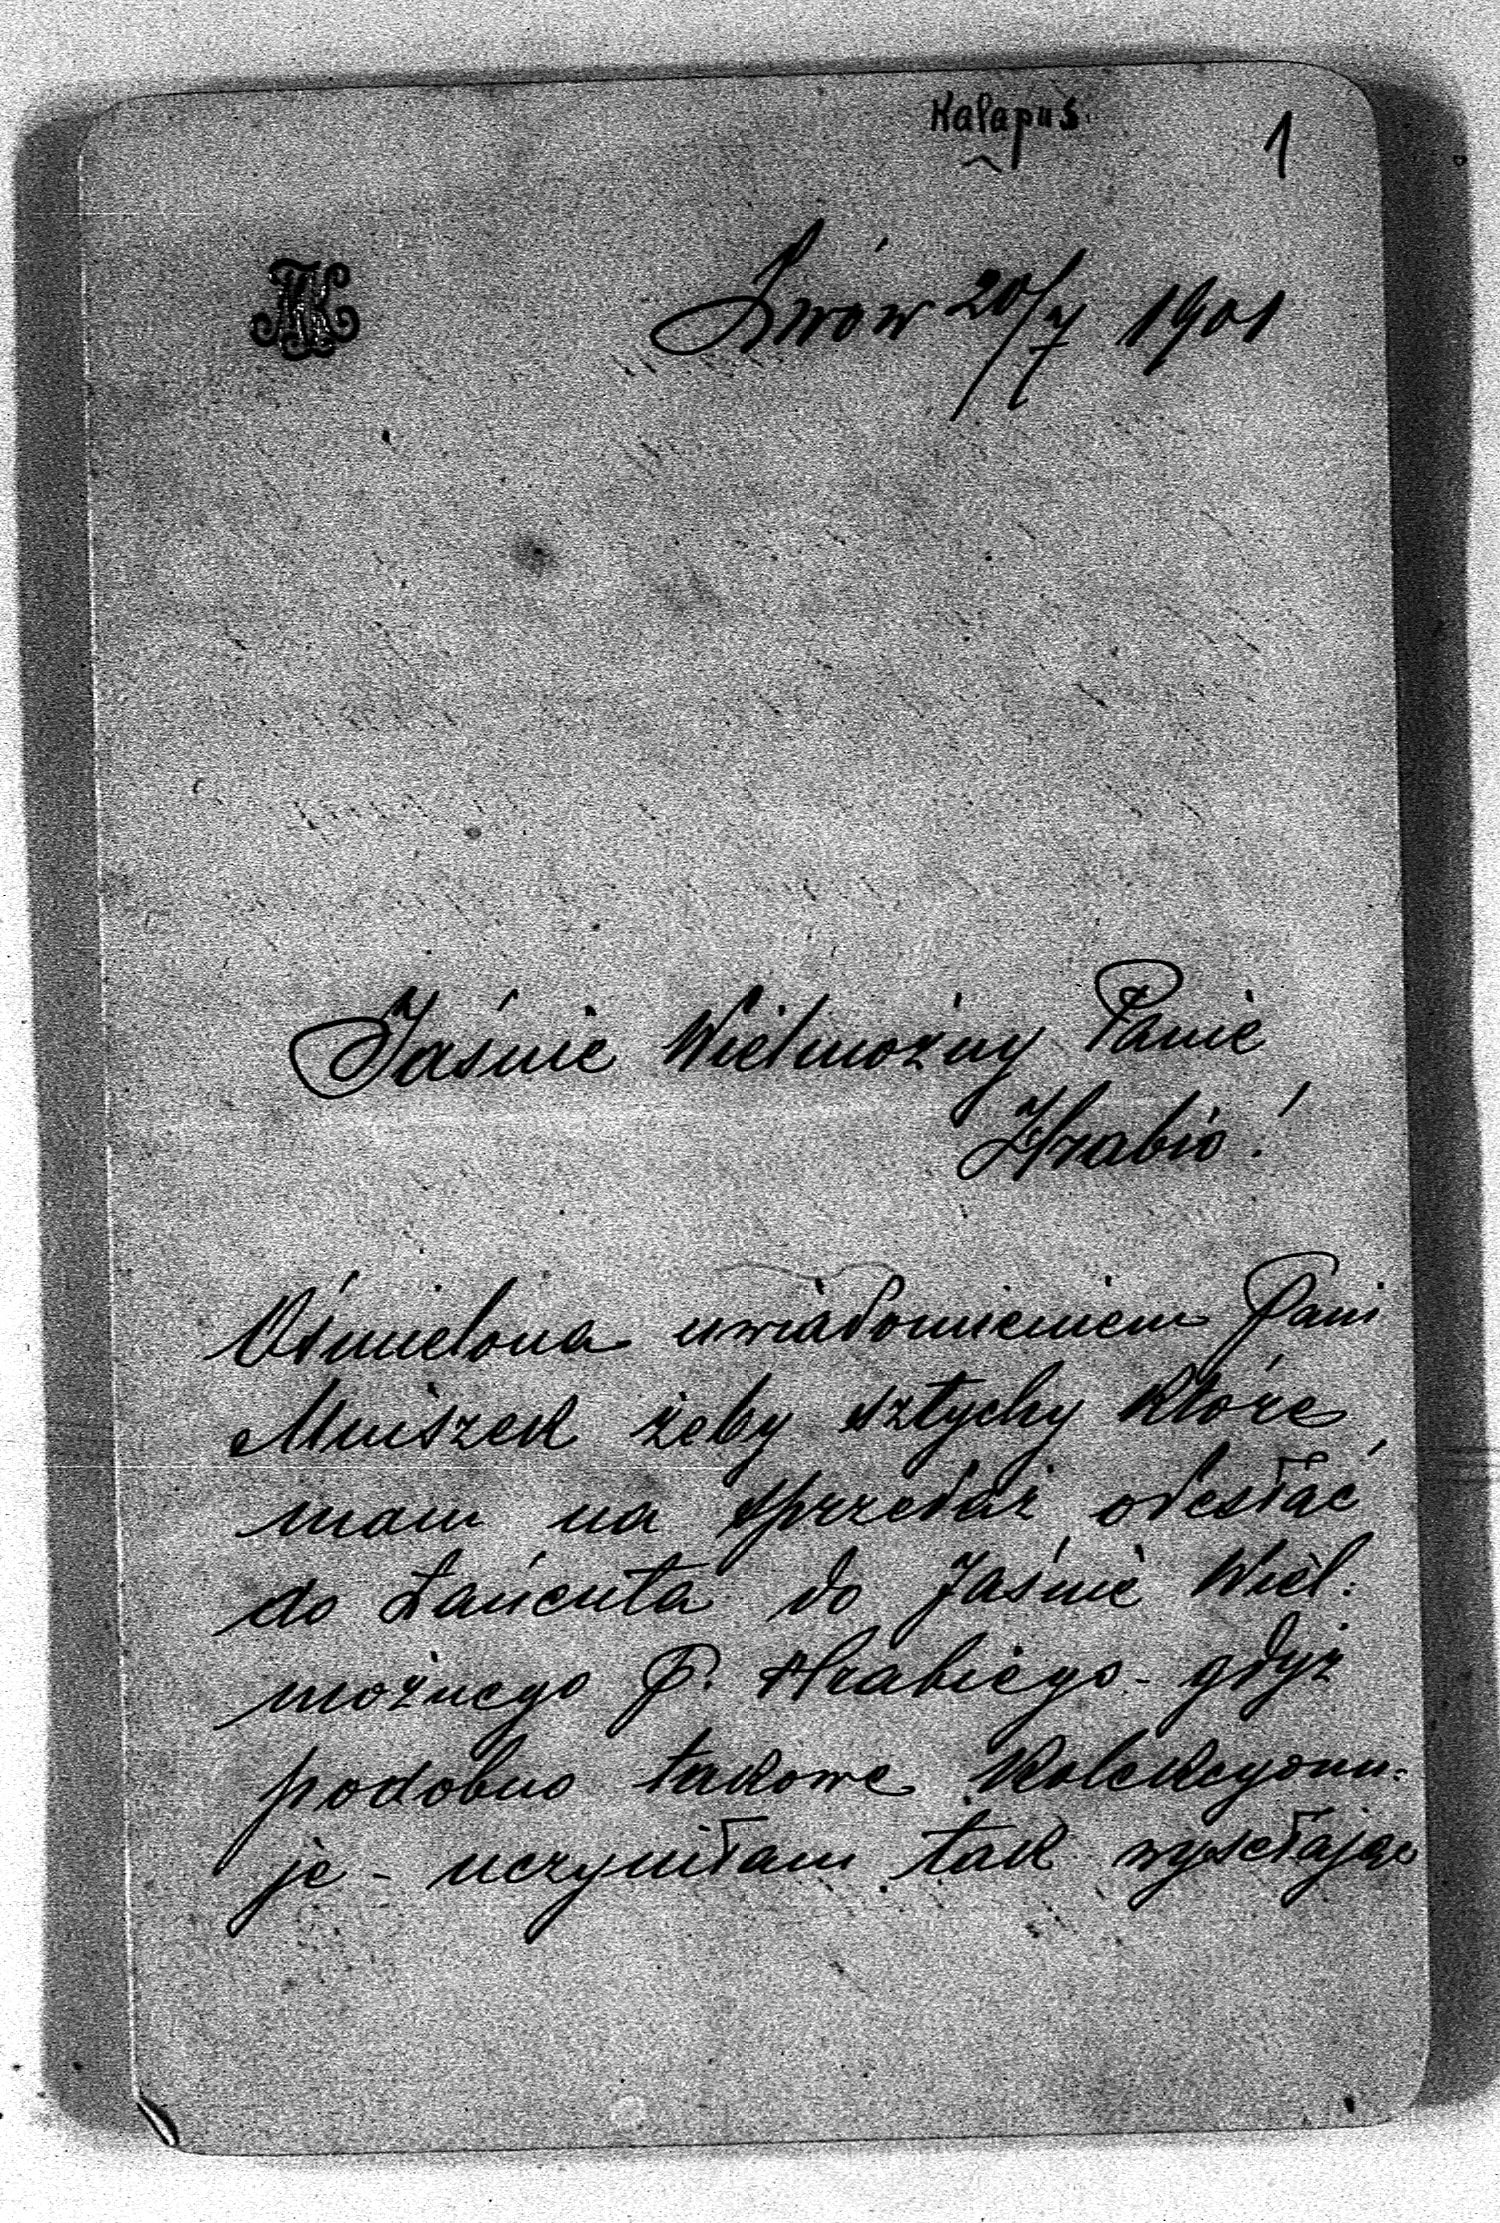 Kałapus
1
Lwów 20/X 1901
Jaśnie Wielmożny Panie
Hrabio!
Ośmielona uwiadomieniem Pani
Mniszek żeby sztychy które
mam na sprzedaż odesłać
do Łańcuta do Jaśnie Wiel.
możnego P. Hrabiego - gdyż
podobno takowe kolekcyonu-
je - uczyniłam tak wysełając